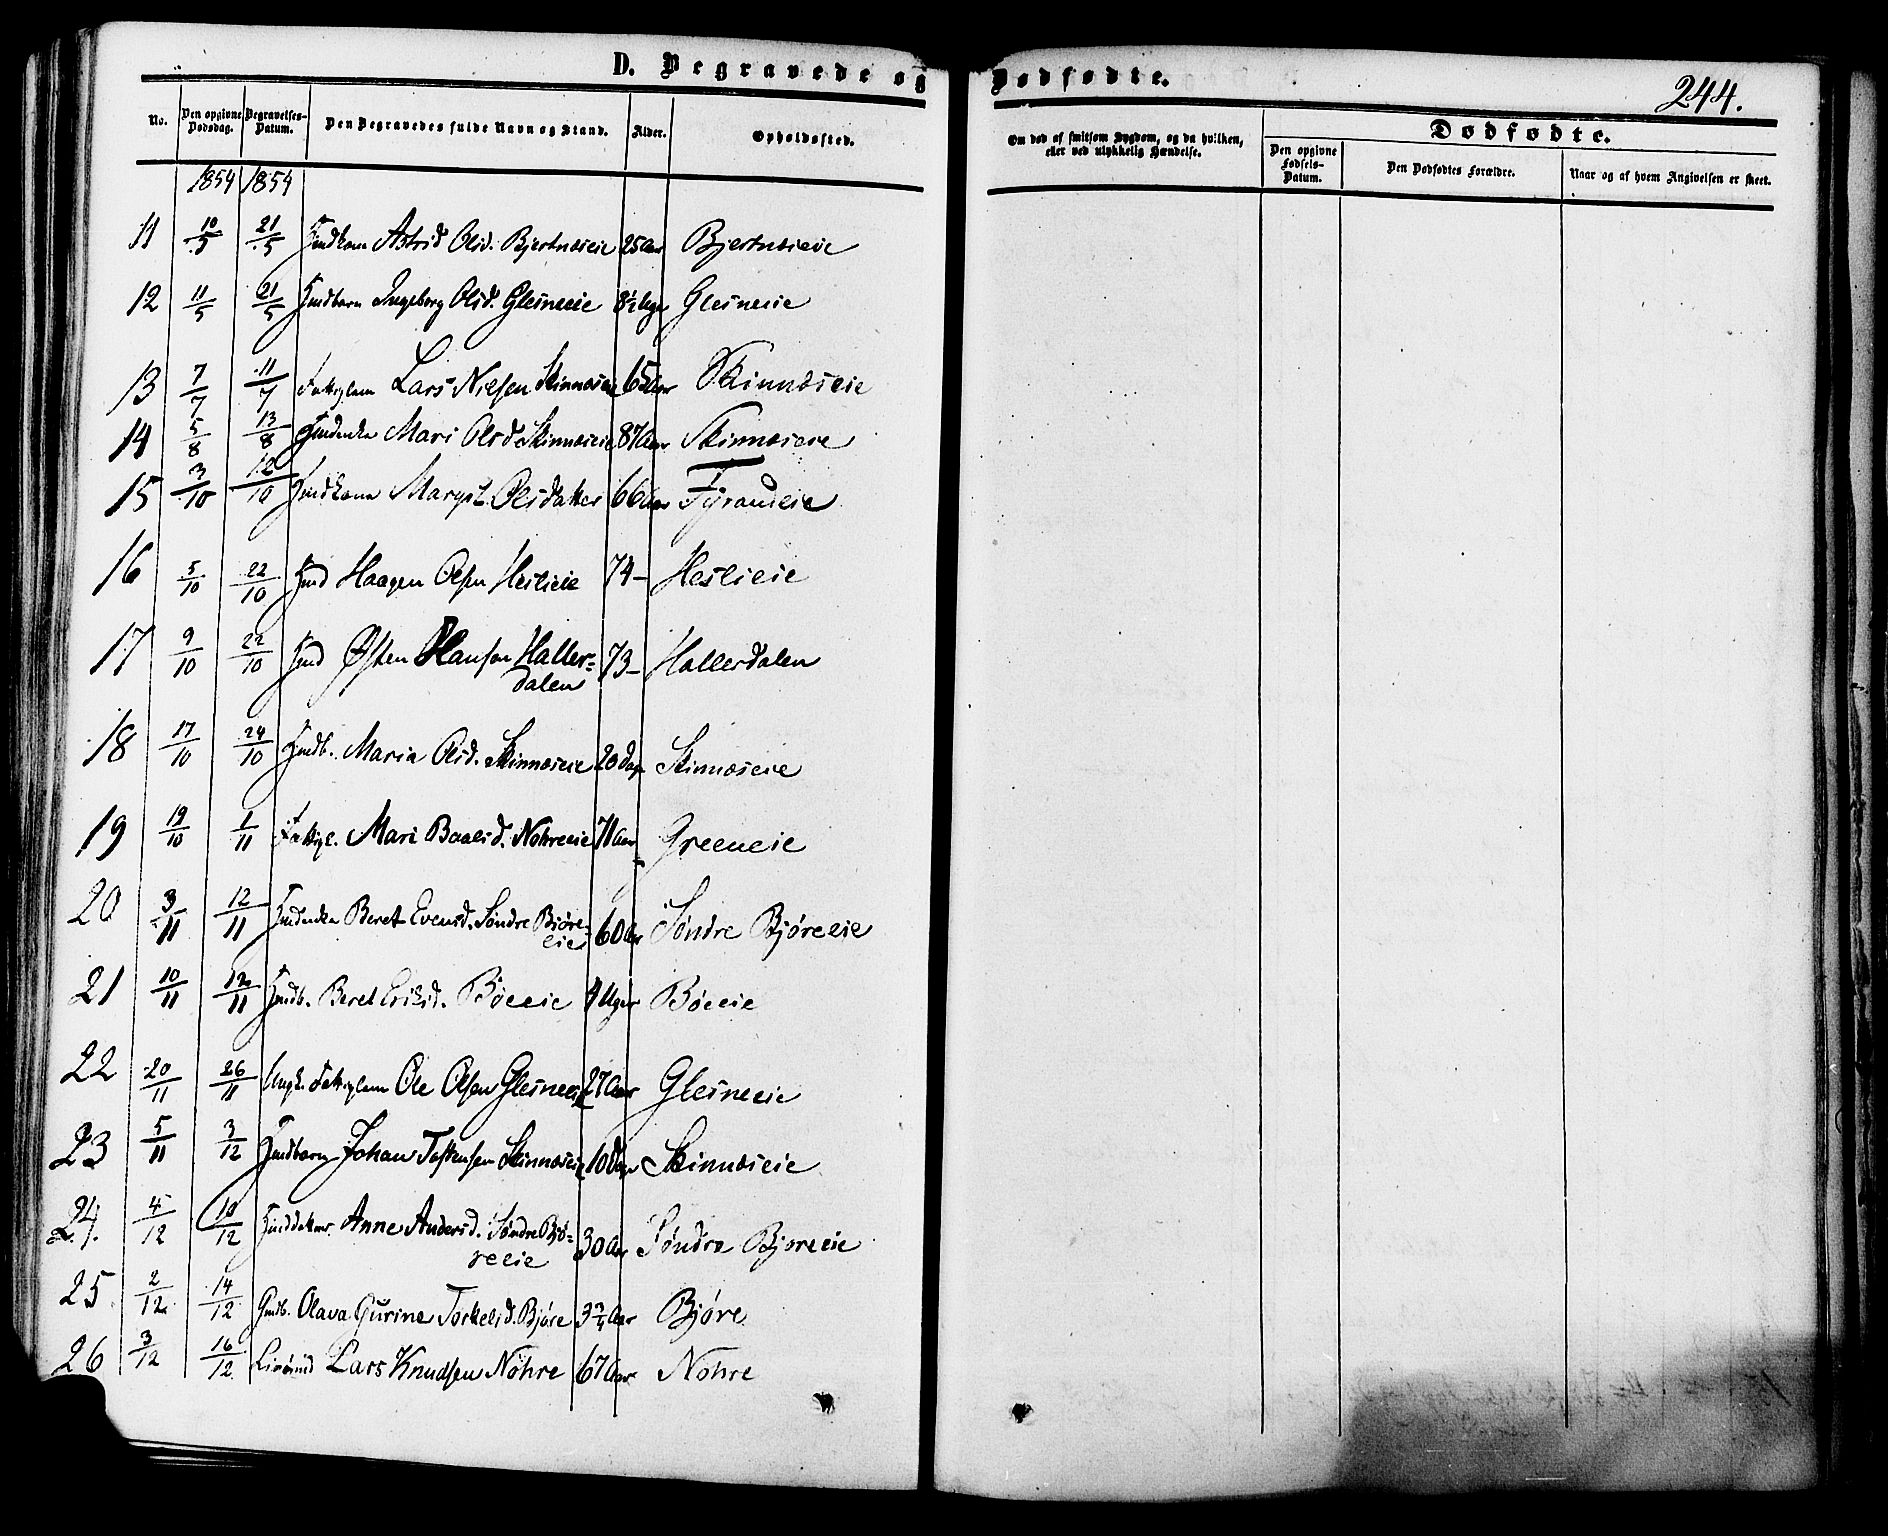 D. Begravede og Dødfødte.
244.
No. Den opgivne Dødsdag. Begravelses-Datum. Den Begravedes fulde Navn og Stand. Alder. Opholdssted. Om død af smitsom Sygdom, og da hvilken, eller ved ulykkelig Hændelse. Dødfødte.
Den opgivne Fødsels-Datum. Den Dødfødtes Forældre. Naar og af hvem Angivelsen er skeet.
1854 1854
11 10/5 21/5 Huuskone Astrid Olsd. Bjertnæseie 25 Aar Bjertnæseie
12 11/5 21/5 Huusbarn Ingeborg Olsd. Glesneeie 8½ Uger Glesneeie
13 7/7 11/7 Fattiglem Lars Nielsen Skinnæseie 65 Aar Skinnæseie
14 5/8 13/8 Huusenke Mari Olsd Skinnæseie 87 Aar Skinnæseie
15 3/10 12/10 Huuskone Margit Olsdatter 66 Aar Tyrandeie
16 5/10 22/10 Huusd Haagen Olsen Heslieie 74 – Heslieie
17 9/10 22/10 Huusd Østen Hansen Haller=
dalen 73 – Hallerdalen
18 17/10 24/10 Huusb. Maria Olsd. Skinnæseie 20 Dage Skinnæseie
19 19/10 1/11 Fattigl. Mari Baalsd. Nohreeie 71 Aar Greeneie
20 3/11 12/11 Huusenke Beret Evensd. Søndre Bjøre-
eie 60 Aar Søndre Bjøreeie
21 10/11 12/11 Huusb. Beret Eriksd. Bøeeie Uger Bøeeie
22 20/11 26/11 Ungk. Fattiglem Ole Olsen Glesneeie 27 Aar Glesneeie
23 5/11 3/12 Huusbarn Johan Tostensen Skinnæseie 10 Dage Skinnæseie
24. 4/12 10/12 Anne Andersd. Søndre Bjø-
reeie 30 Aar Søndre Bjøreeie
25 2/12 14/12 Gaardb. Olava Gurine Torkelsd. Bjøre 3¾ Aar Bjøre
26 3/12 16/12 Lars Knudsen Nohre 67 Aar Nohre